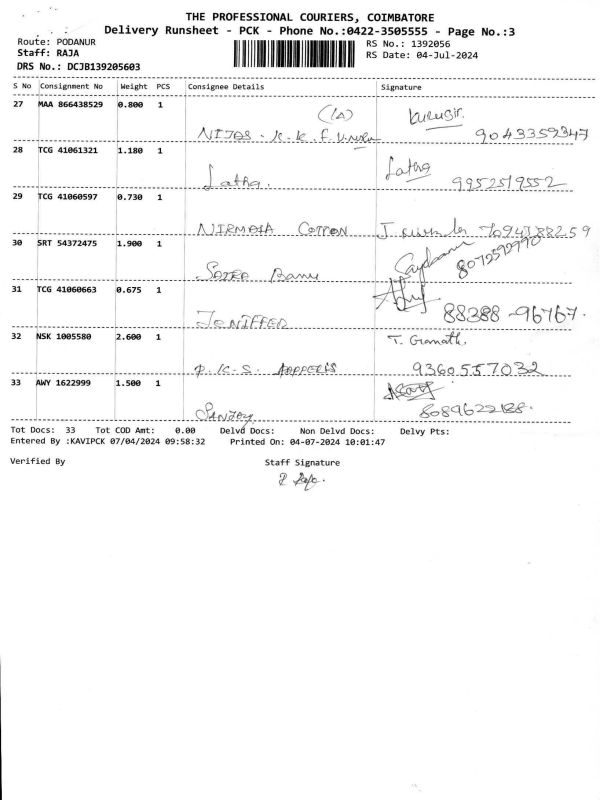 THE PROFESSIONAL COURIERS, COIMBATORE
Delivery Runsheet - PCK - Phone No.:0422-3505555 - Page No.:3
Route: PODANUR
RS No.: 1392056
Staff: RAJA
RS Date: 04-Jul-2024
DRS No.: DCJB139205603
S No Consignment No Weight PCS Consignee Details Signature
27 MAA 866438529 0.800 1
(1A)
NIJAS. K.K.
9043359347
28 TCG 41061321 1.180 1
Latha. Latha
9952519552
29 TCG 41060597 0.730 1
NIRMALA COTTON
30 SRT 54372475 1.900 1
8072592990
Banu
31 TCG 41060663 0.675 1
JENIFFER 88388-96767.
32 NSK 1005580 2.600 1
P.K.S. 9360557032
33 AWY 1622999 1.500 1
SANJAY
Tot Docs: 33 Tot COD Amt: 0.00 Delvd Docs: Non Delvd Docs: Delvy Pts:
Entered By :KAVIPCK 07/04/2024 09:58:32 Printed On: 04-07-2024 10:01:47
Verified By Staff Signature